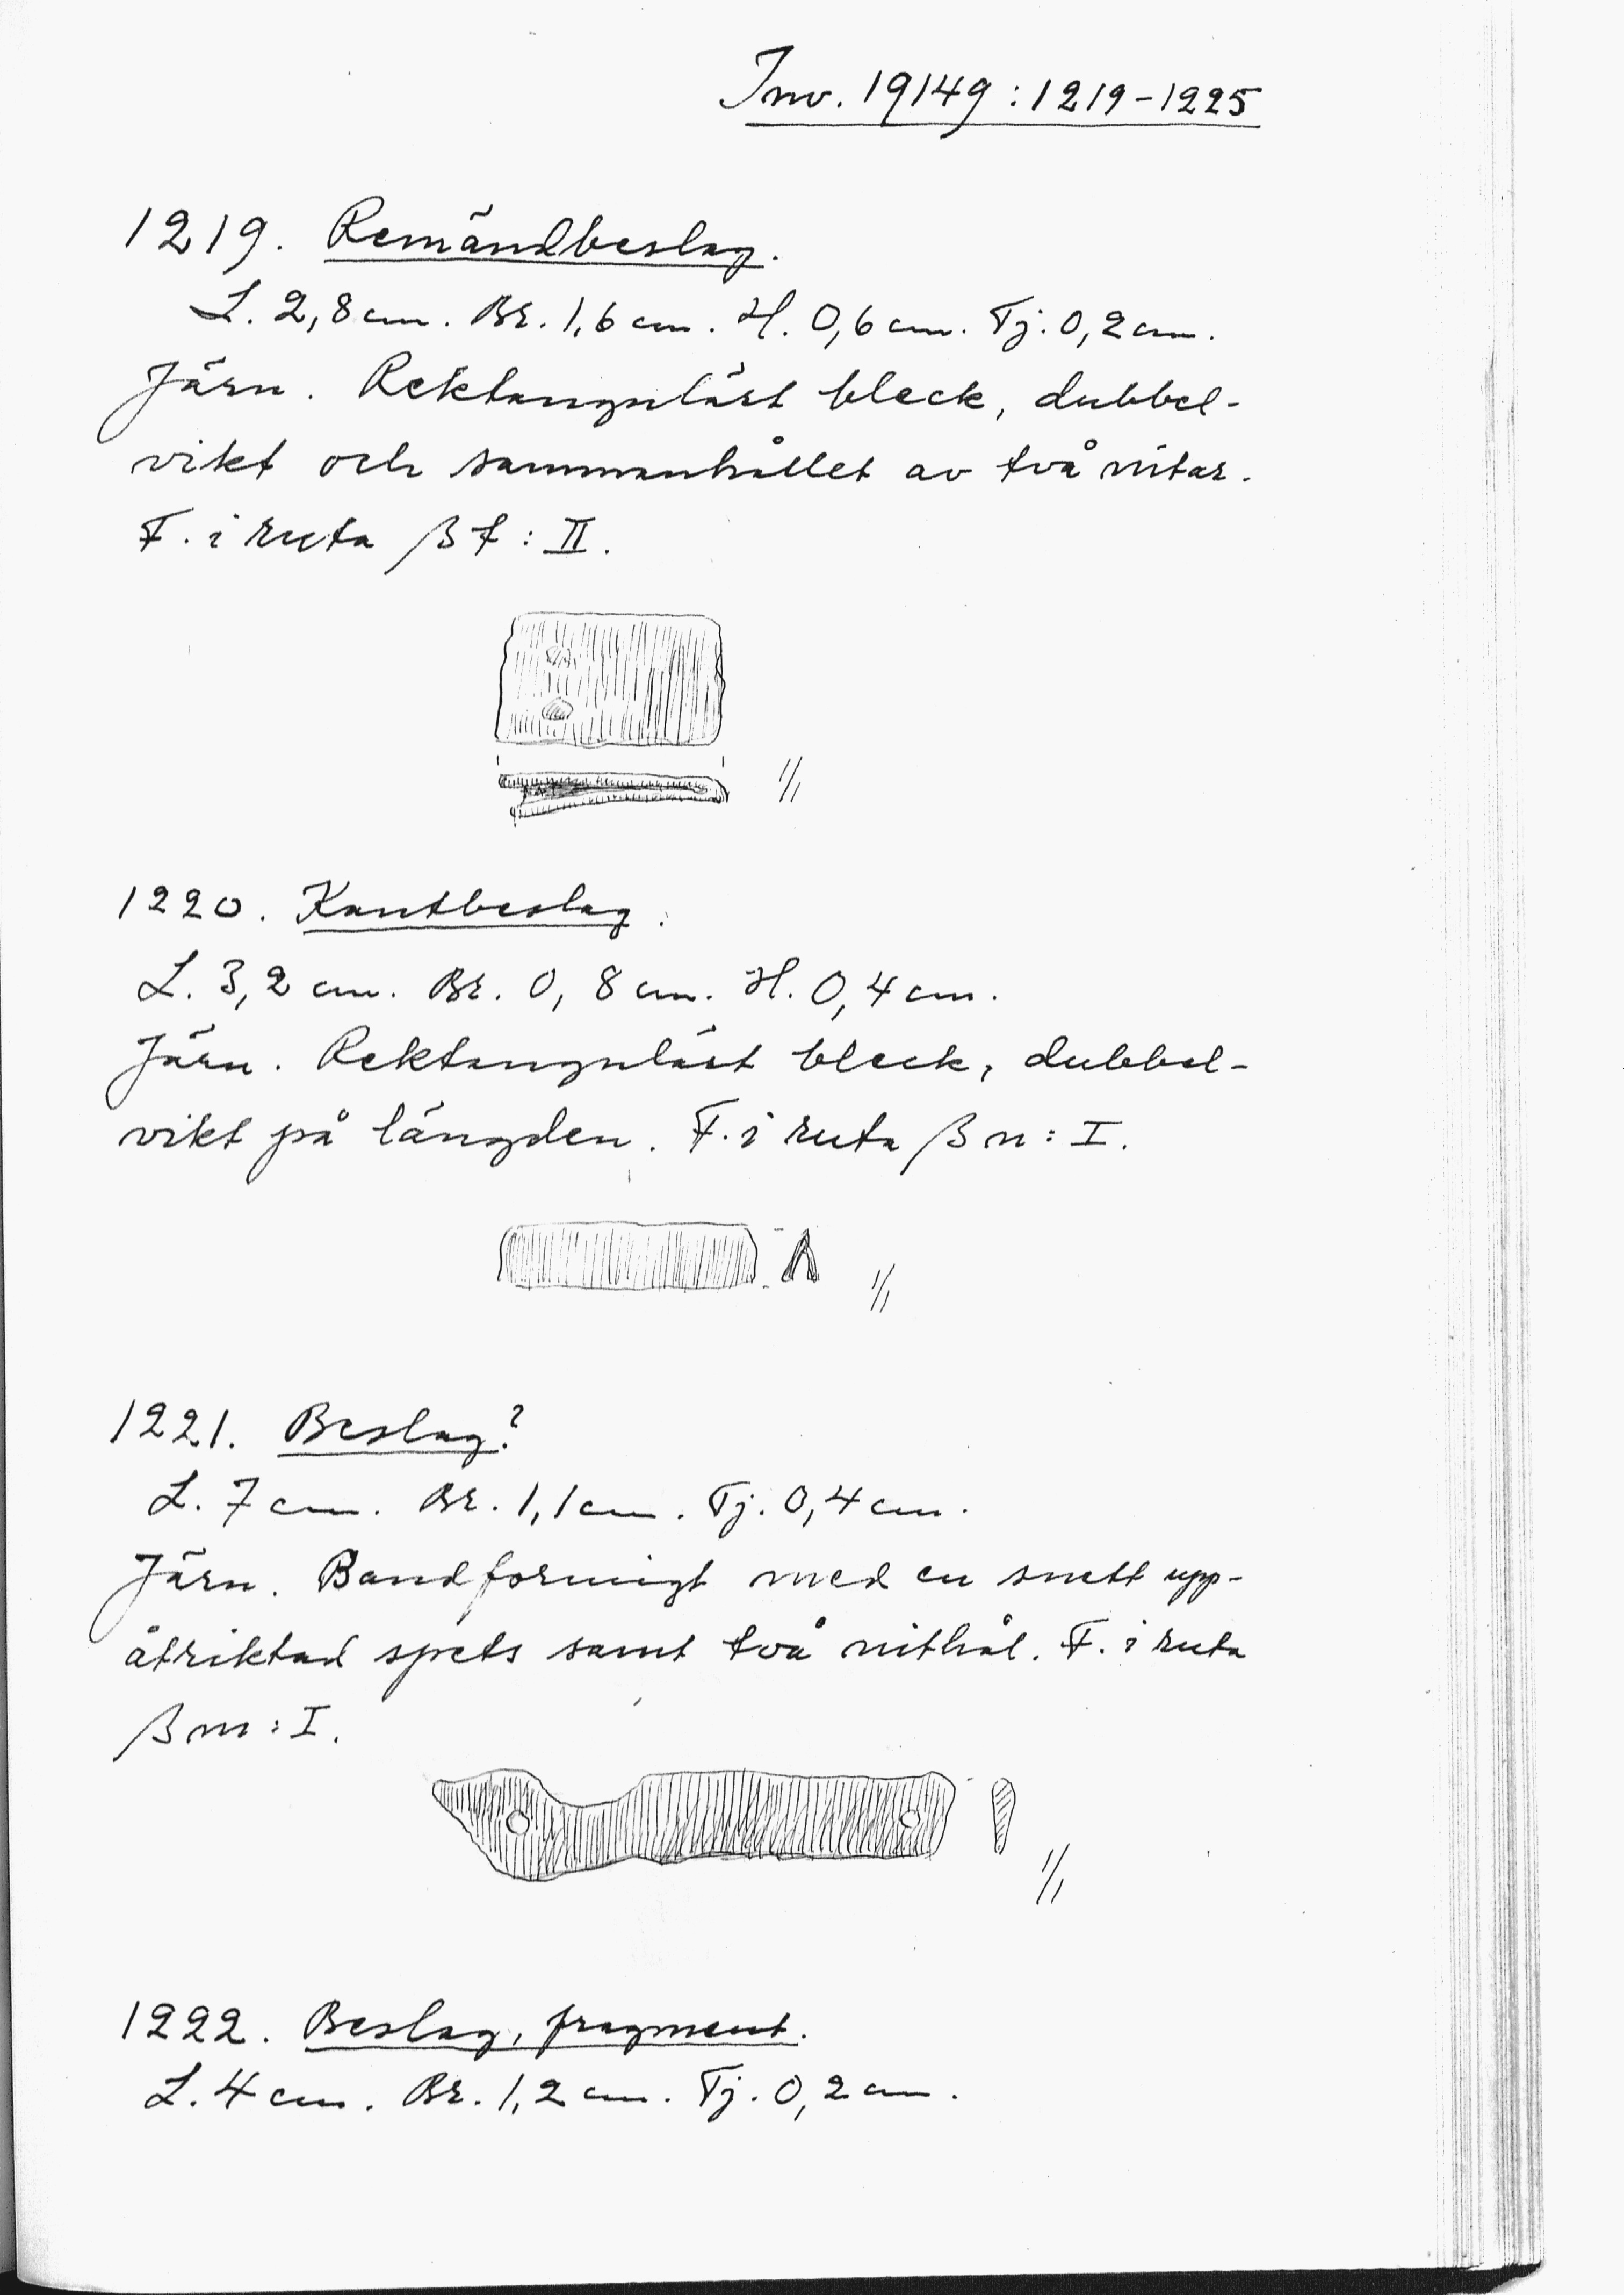 Inv. 19149:1219-1225
1219. Remändbeslag.
L. 2,8 cm. Br. 1,6 cm. H. 0,6 cm. Tj. 0,2 cm.
Järn. Rektangulärt bleck, dubbel-
vikt och sammanhållet av två nitar.
F. i ruta β f: II.
1/1
1220. Kantbeslag.
L. 3,2 cm. Br. 0,8 cm. H. 0,4 cm.
Järn. Rektangulärt bleck, dubbel-
vikt på längden. F. i ruta β n: I.
1/1
1221. Beslag?
L. 7 cm. Br. 1,1 cm. Tj. 0,4 cm.
Järn. Bandformigt med en snett upp-
åtriktad spets samt två nithål. F. i ruta
β m: I.
1/1
1222. Beslag, fragment.
L. 4 cm. Br. 1,2 cm. Tj. 0,2 cm.